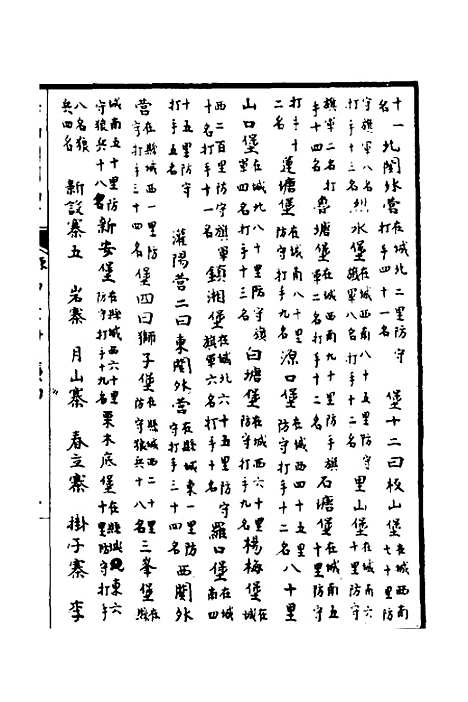 十一名北關外營在城北二里防守打手四十一名 堡十二曰板山堡在城西南七十里防
守旗軍八名打手十三名烈水堡在城西南八十五里防守旗軍八名打手十二名里山堡在城南六十里防守
旗軍二名打手十四名魯塘堡在城西南九十里防守旗軍二名打手十二名石塘堡在城南五十里防守
打手十二名蓮塘堡在城南八十里防守打手九名源口堡在城西四十五里防守打手十二名八十里
山口堡在城北八十里防守旗軍四名打手十三名白塘堡在城西六十里防守打手九名楊梅堡在城
西二百里防守旗軍十名打手十一名鎮湘堡在城北六十五里防守旗軍六名打手十名羅口堡在城南四
十五里防守打手五名 灌陽營二曰東關外營在縣城東一里防守打手三十四名西關外
營在縣城西一里防守打手三十四名堡四曰獅子堡在縣城西二十里防守狼兵十八名三峯堡在縣
城南五十里防守狼兵十八名新安堡在縣城西六十里防守打手十九名栗木底堡在縣城東六十里防守打手
八名狼兵四名 新設寨五 岩寨 月山寨 春立寨 掛子寨 李